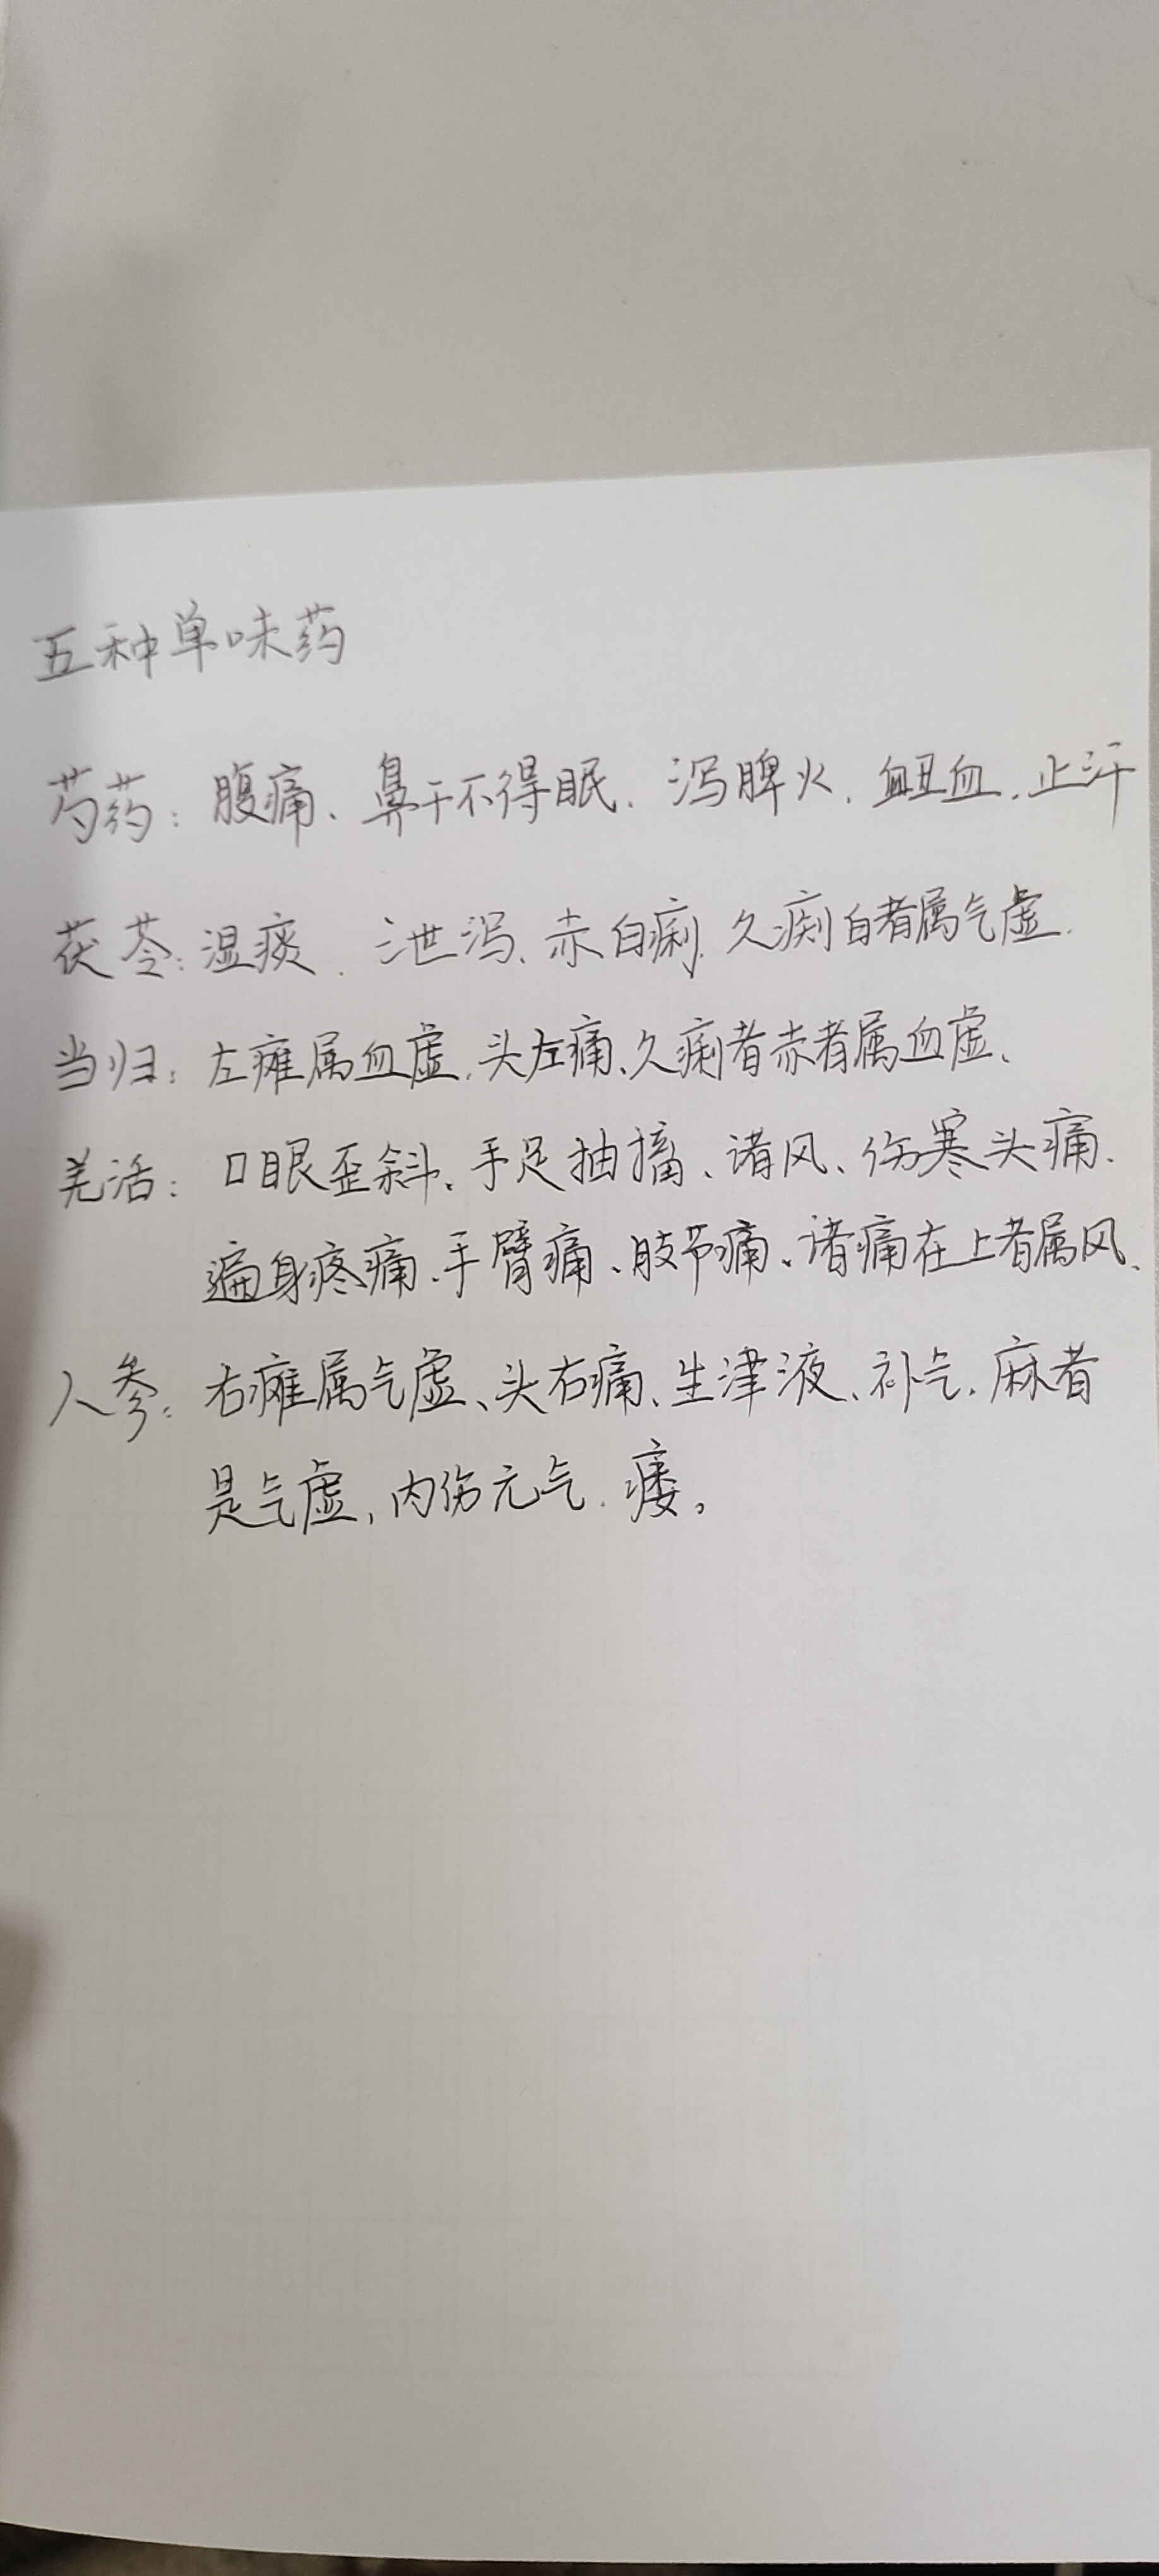 五种单味药
芍药：腹痛、鼻干不得眠、泻脾火、衄血、止汗
茯苓：湿痰、泄泻、赤白痢、久痢白者属气虚、
当归：左瘫属血虚、头左痛、久痢者赤者属血虚、
羌活：口眼歪斜、手足抽搐、诸风、伤寒头痛、
遍身疼痛、手臂痛、肢节痛、诸痛在上者属风、
人参：右瘫属气虚、头右痛、生津液、补气、麻者
是气虚、内伤元气、痿。